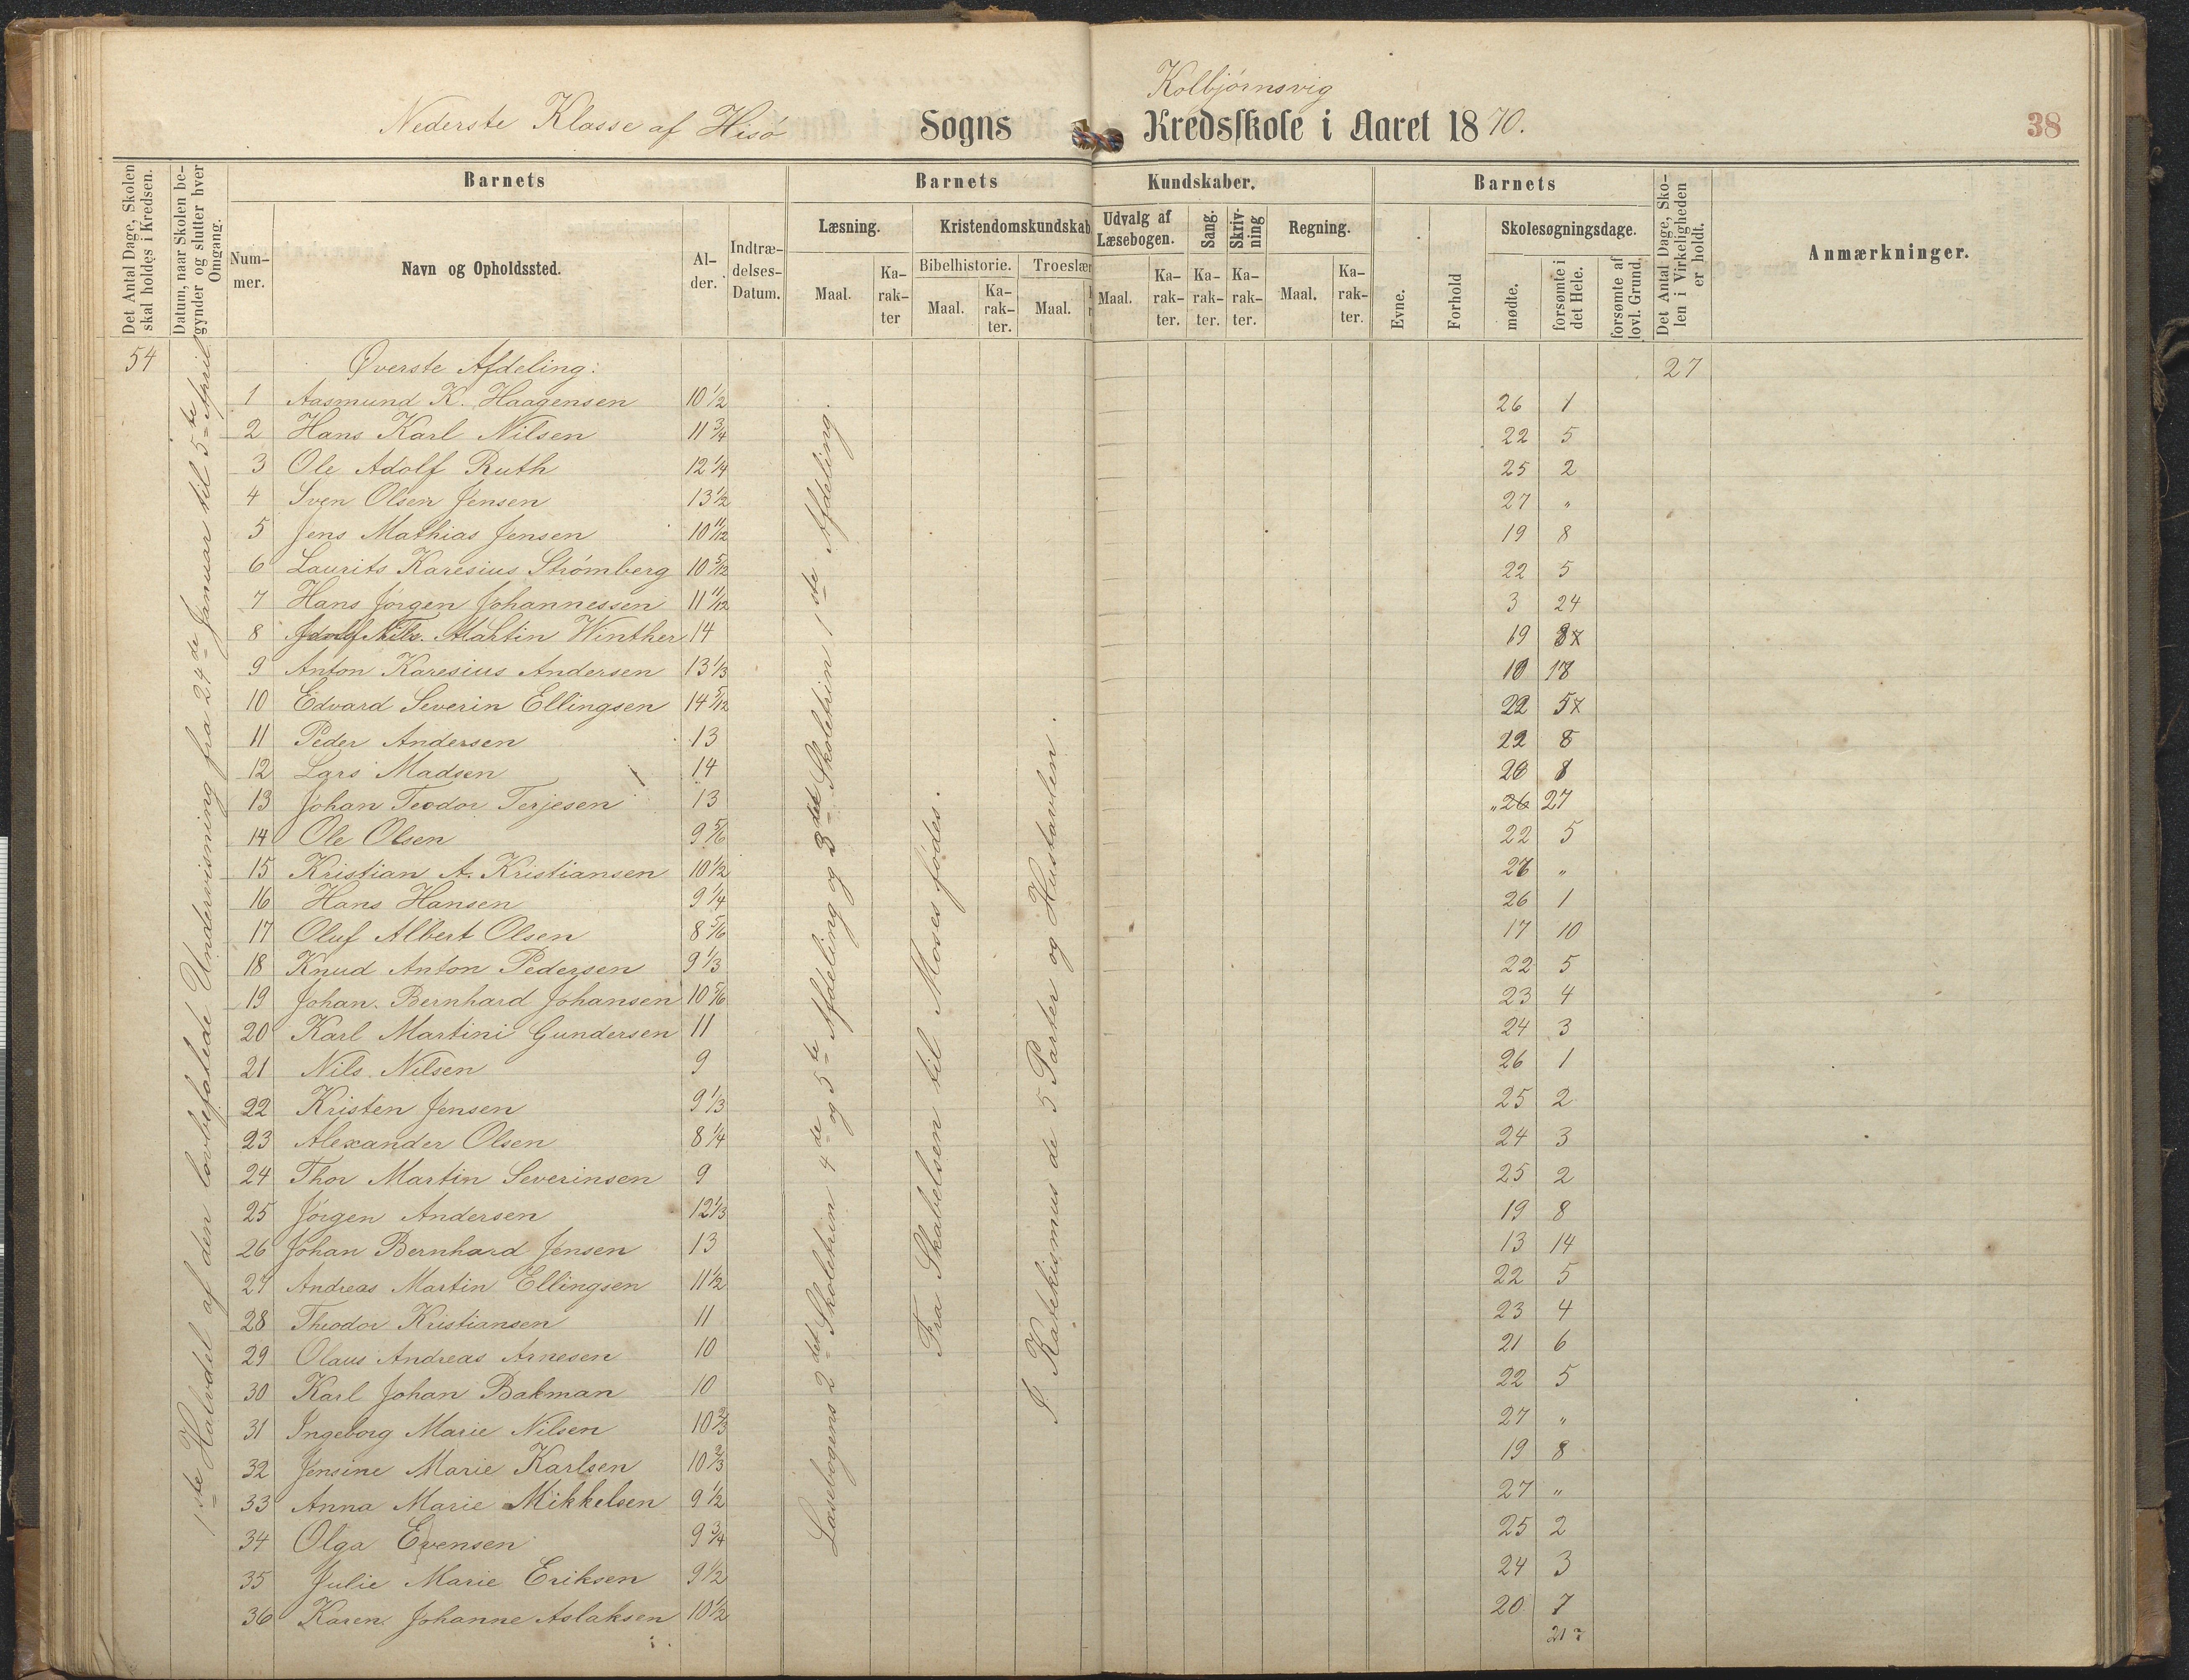 Nederste Klasse af Hisö Sogns Kolbjørnsvig Kredsskole i Aaret 1870.
38
Det Antal Dage, Skolen skal holdes i Kredsen.
Datum, naar Skolen begynder og slutter hver Omgang.
Barnets
Nummer.
Navn og Opholdssted.
Alder.
Indtrædelses-Datum.
Barnets Kundskaber.
Læsning.
Maal.
Karakter
Kristendomskundskab
Bibelhistorie.
Maal.
Karakter.
Troeslær
Maal.
Udvalg af Læsebogen.
Maal.
Karakter.
Sang.
Karakter.
Skrivning
Karakter.
Regning.
Maal.
Karakter.
Barnets
Evne.
Forhold
Skolesøgningsdage.
mødte.
forsømte i det Hele.
forsømte af lovl. Grund.
Det Antal Dage, Skolen i Virkeligheden er holdt.
Anmærkninger.
54 Øverste Afdeling: 27
1 Aasmund K. Haagensen 10 1/2 26 1
2 Hans Karl Nilsen 11 3/4 22 5
3 Ole Adolf Ruth 12 1/4 25 2
4 Sven Olsen Jensen 13 1/2 27 "
5 Jens Mathias Jensen 10 11/12 19 8
6 Laurits Karesius Strømberg 10 5/12 22 5
7 Hans Jørgen Johannessen 11 11/12 3 24
8 Martin Winther 14 19
9 Anton Karesius Andersen 13 1/3
10 Edvard Severin Ellingsen 14 5/12 22
11 Peder Andersen 13
12 Lars Madsen 14
13 Johan Teodor Terjesen 13 " 26 27
14 Ole Olsen 9 5/6 22 5
15 Kristian A. Kristiansen 10 1/2 27 "
16 Hans Hansen 9 1/4 26 1
17 Oluf Albert Olsen 8 5/6 17 10
18 Knud Anton Pedersen 9 1/3 22 5
19 Johan Bernhard Johansen 10 5/6 23 4
20 Karl Martini Gundersen 11 24 3
21 Nils Nilsen 9 26 1
22 Kristen Jensen 9 1/3 25 2
23 Alexander Olsen 8 1/4 24 3
24 Thor Martin Severinsen 9 25 2
25 Jørgen Andersen 12 1/3 19 8
26 Johan Bernhard Jensen 13 13 14
27 Andreas Martin Ellingsen 11 1/2 22 5
28 Theodor Kristiansen 11 23 4
29 Olaus Andreas Arnesen 10 21 6
30 Karl Johan Bakman 10 22 5
31 Ingeborg Marie Nilsen 10 2/3 27 "
32 Jensine Marie Karlsen 10 2/3 19 8
33 Anna Marie Mikkelsen 9 1/2 27 "
34 Olga Evensen 9 3/4 25 2
35 Julie Marie Eriksen 9 1/2 24 3
36 Karen Johanne Aslaksen 10 1/2 20 7
1ste Halvdel af den lovbefalede Undervisning fra 24de Januar til 5te April
Læsebogens 2det Skoletrin 4de og 5te Afdeling og 3det Skoletrin 1ste Afdeling.
Fra Skabelsen til Moses fødes.
I Katekismus de 5 Parter og Hustavlen.